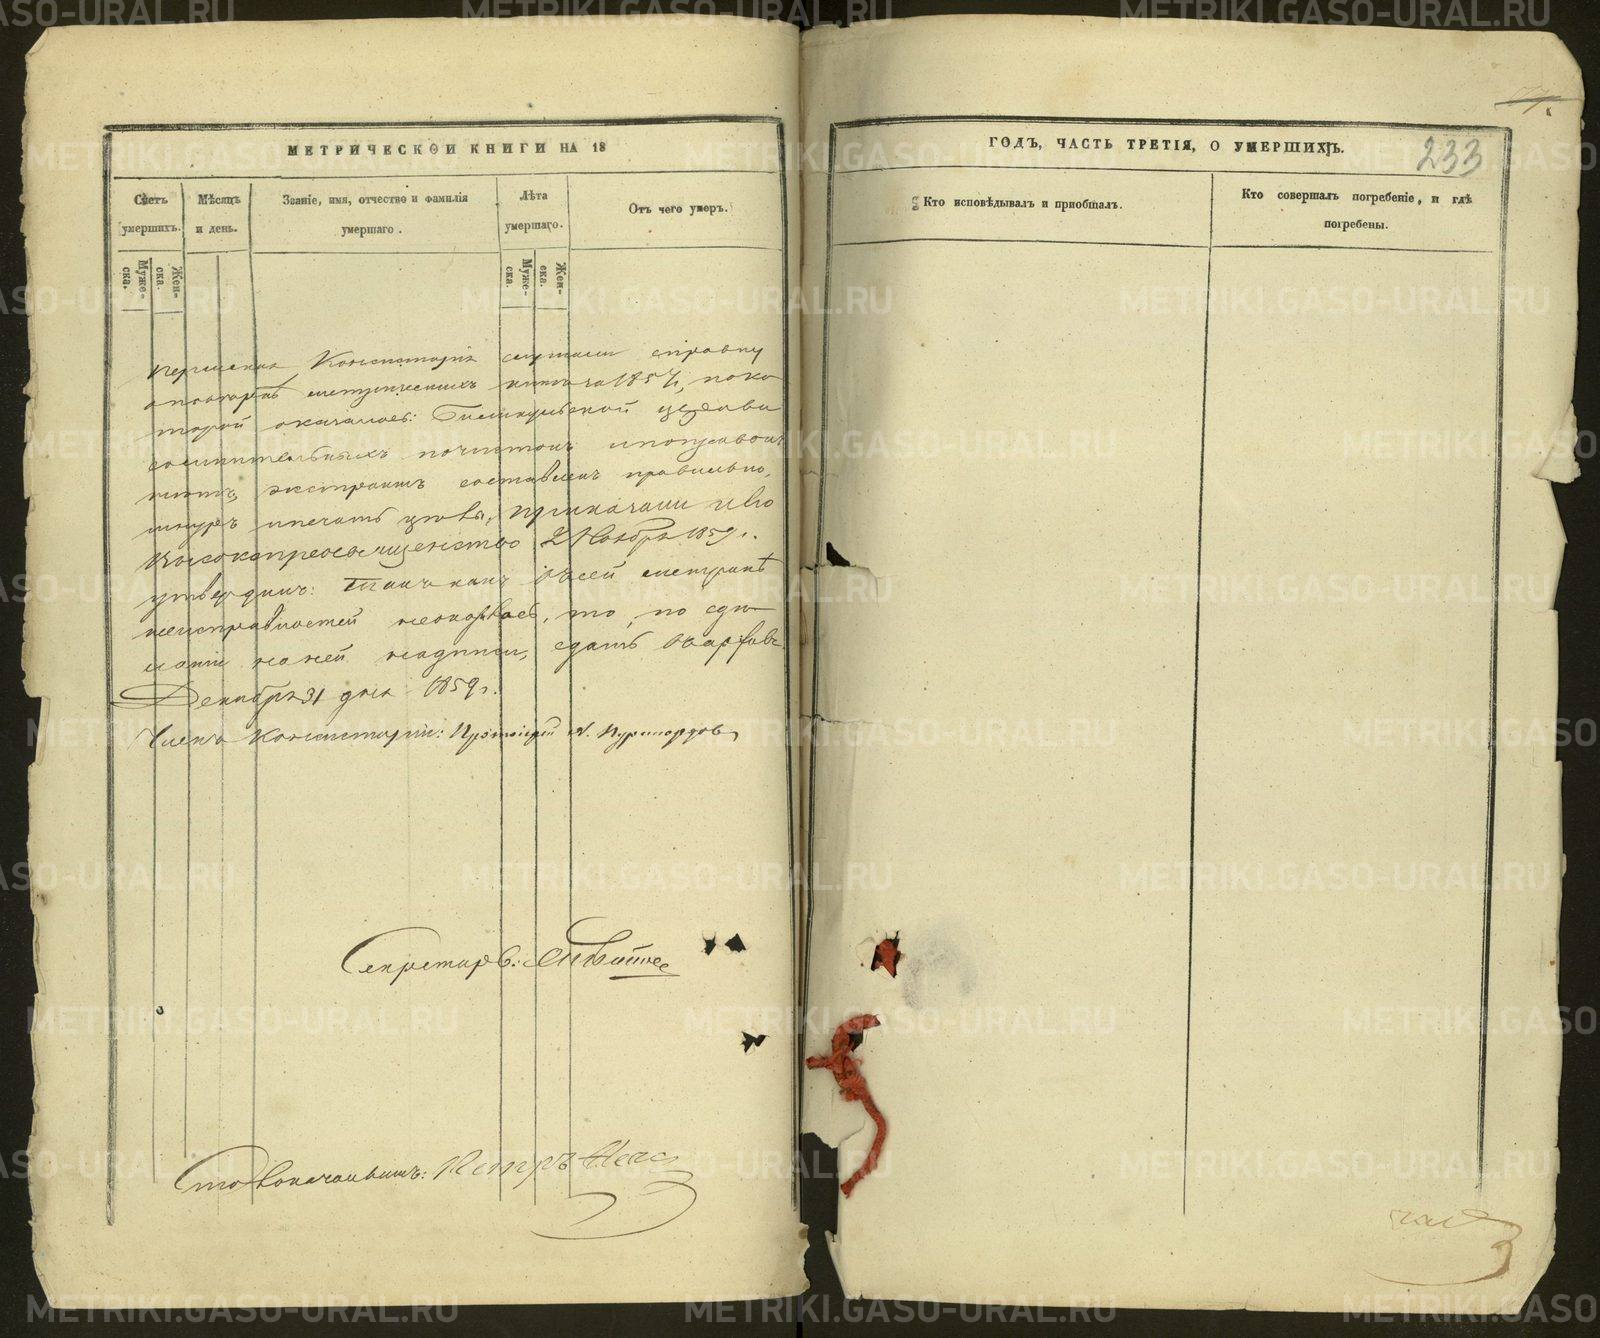 МЕТРИЧЕСКОЙ КНИГИ НА 18
Счетъ умершихъ.
Муже-
ска.
Жен-
ска.
Мѣсяцъ и день.
Званіе, имя, отчество и фамилія
умершаго.
Лѣта
умершаго.
Муже-
ска.
Жен-
ска.
Отъ чего умеръ.
Консисторія слушали справку
метрическихъ 1857 г., по ко
торой оказалось: церкви
сомнительныхъ почистокъ и поправокъ
нѣтъ, экстрактъ составленъ правильно,
шнуръ и печать цѣлы, приказали и Его
Высокопреосвященство 2 Ноября 1859 г.
утвердилъ: Такъ какъ въ сей метрикѣ
неисправностей неоказалось, то, по сдѣ
ланіи на ней надписи, сдать въ архивъ.
Декабря 31 дня 1859 г.
Членъ Консисторіи: Протоіерей
Секретарь:
Столоначальникъ: Петръ
ГОДЪ, ЧАСТЬ ТРЕТІЯ, О УМЕРШИХЪ.
233
Кто исповѣдывалъ и пріобщалъ.
Кто совершалъ погребеніе, и гдѣ
погребены.
METRIKI.GASO-URAL.RU